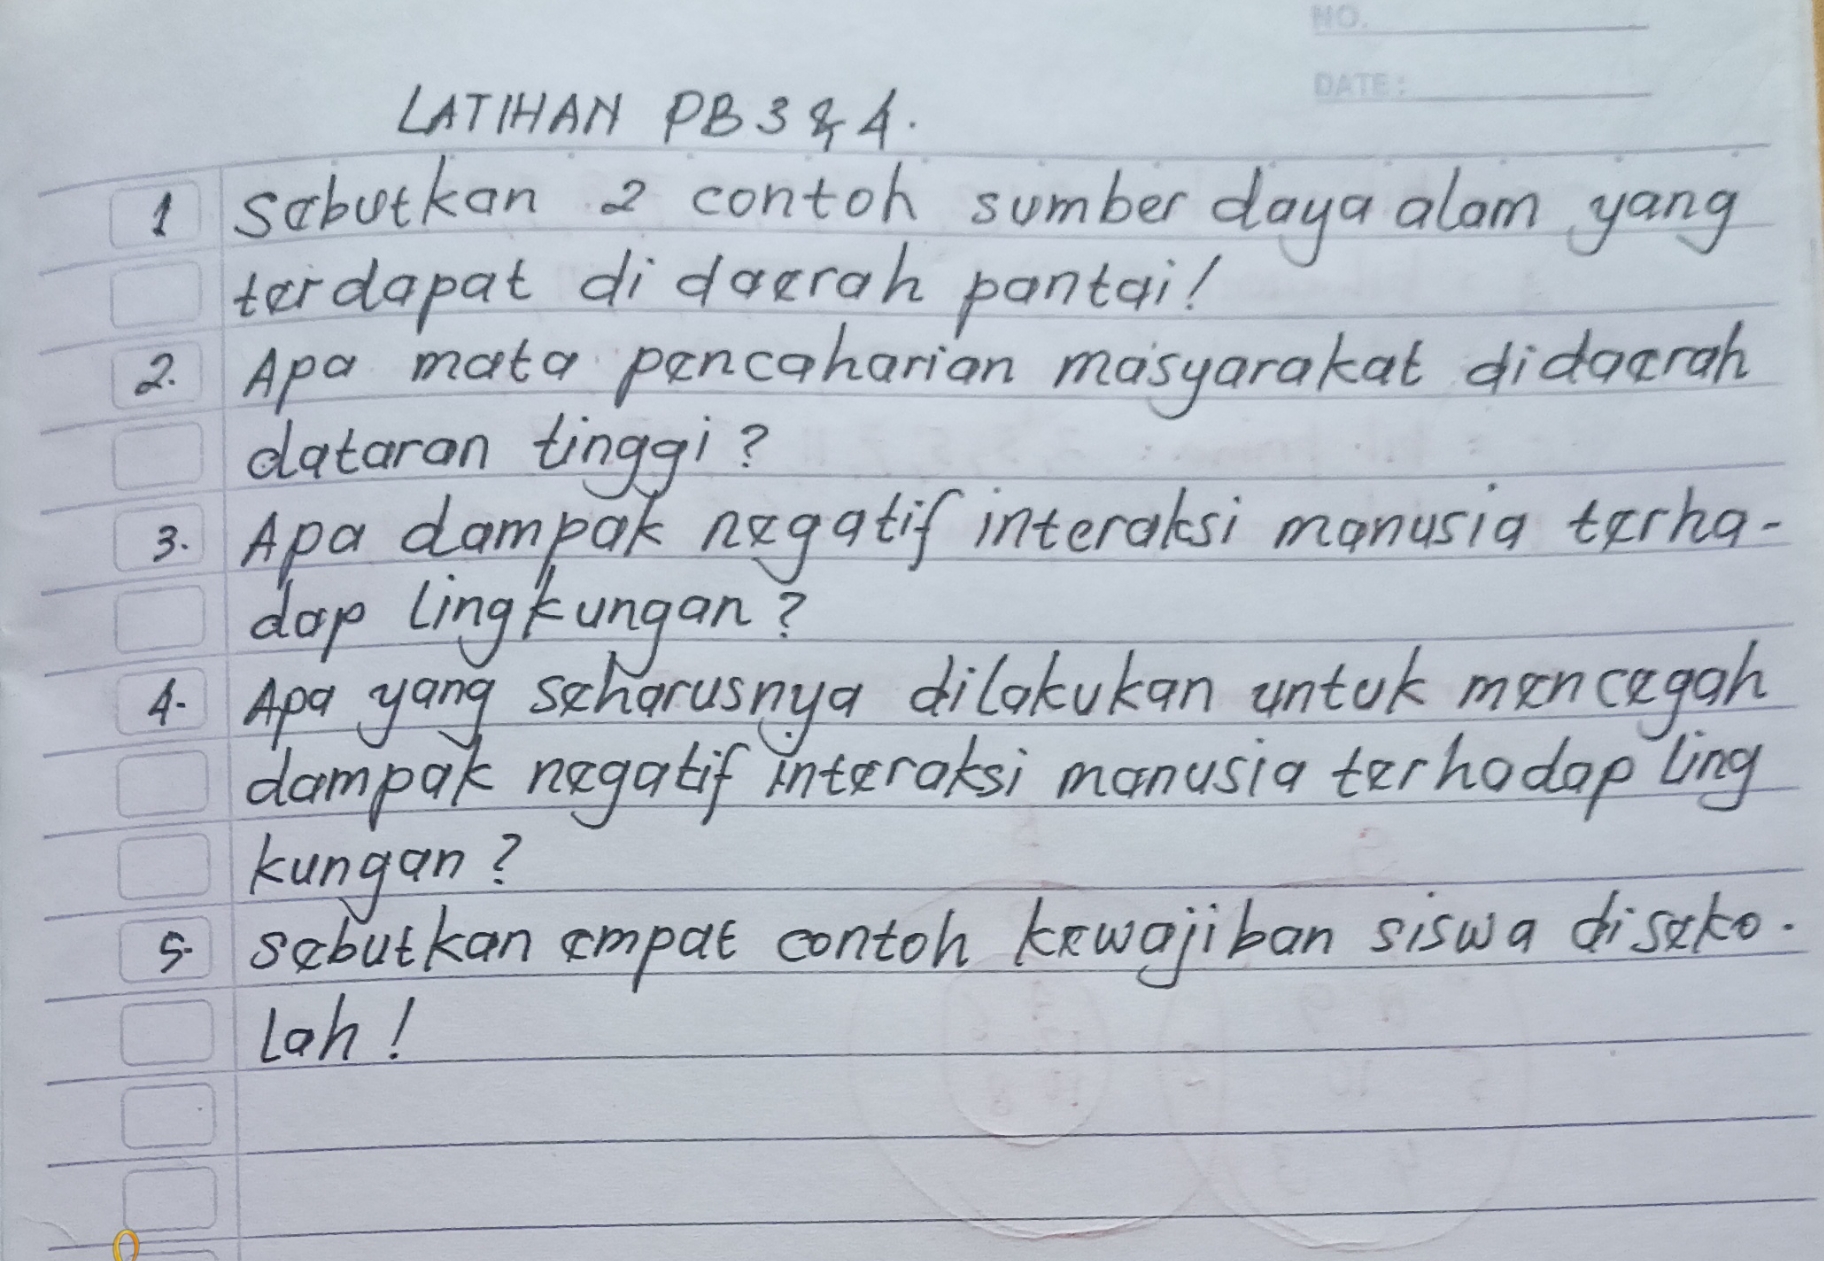 NO.
DATE:
LATIHAN PB 3 & 4.
1 Sebutkan 2 contoh sumber daya alam yang
terdapat di daerah pantai!
2. Apa mata pencaharian masyarakat didaerah
dataran tinggi?
3. Apa dampak negatif interaksi manusia terha-
dap lingkungan?
4. Apa yang seharusnya dilakukan untuk mencegah
dampak negatif interaksi manusia terhadap ling
kungan?
5. Sebutkan empat contoh kewajiban siswa diseko-
lah!